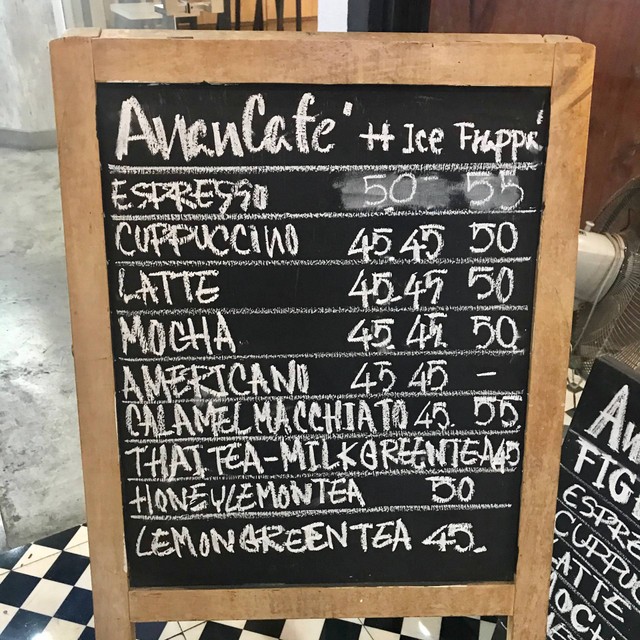 AnanCafe' H Ice Frappe'
ESPRESSO 50 55
CUPPUCCINO 45 45 50
LATTE 45 45 50
MOCHA 45 45 50
AMERICANO 45 45 -
CALAMEL MACCHIATO 45 55
THAI TEA-MILK GREEN TEA 45
HONEY LEMON TEA 50
LEMON GREEN TEA 45
An
FIG
ESPRE
CUPPU
LATTE
MOCH